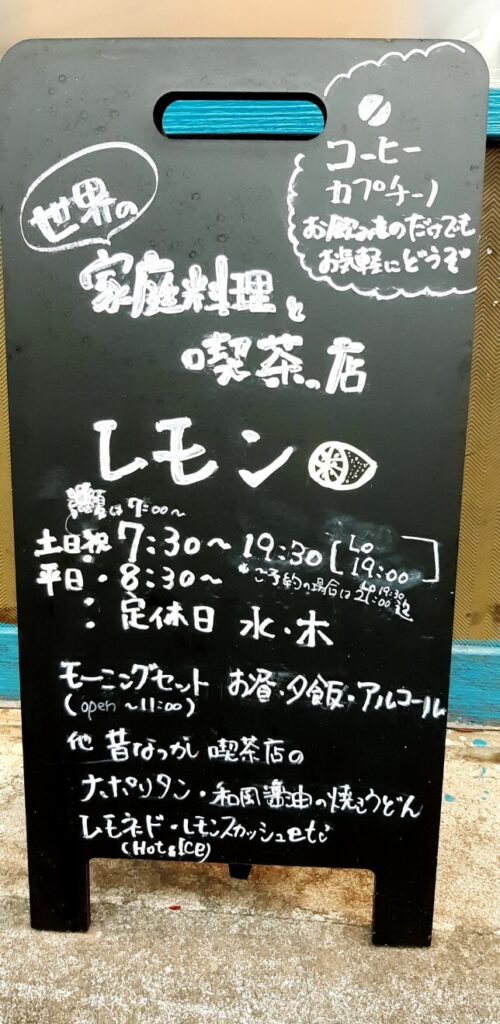 コーヒー
カプチーノ
お飲みものだけでも
お気軽にどうぞ
世界の
家庭料理と
喫茶の店
レモン
夏は7:00〜
土日祝 7:30〜19:30 [LO 19:00]
平日・8:30〜 *ご予約の場合は 21:00迄
: 定休日 水・木
モーニングセット お昼・夕飯・アルコール
(open 〜11:00)
他 昔なつかし 喫茶店の
ナポリタン・和風醤油の焼うどん
レモネード・レモンスカッシュetc
(Hot & ICE)